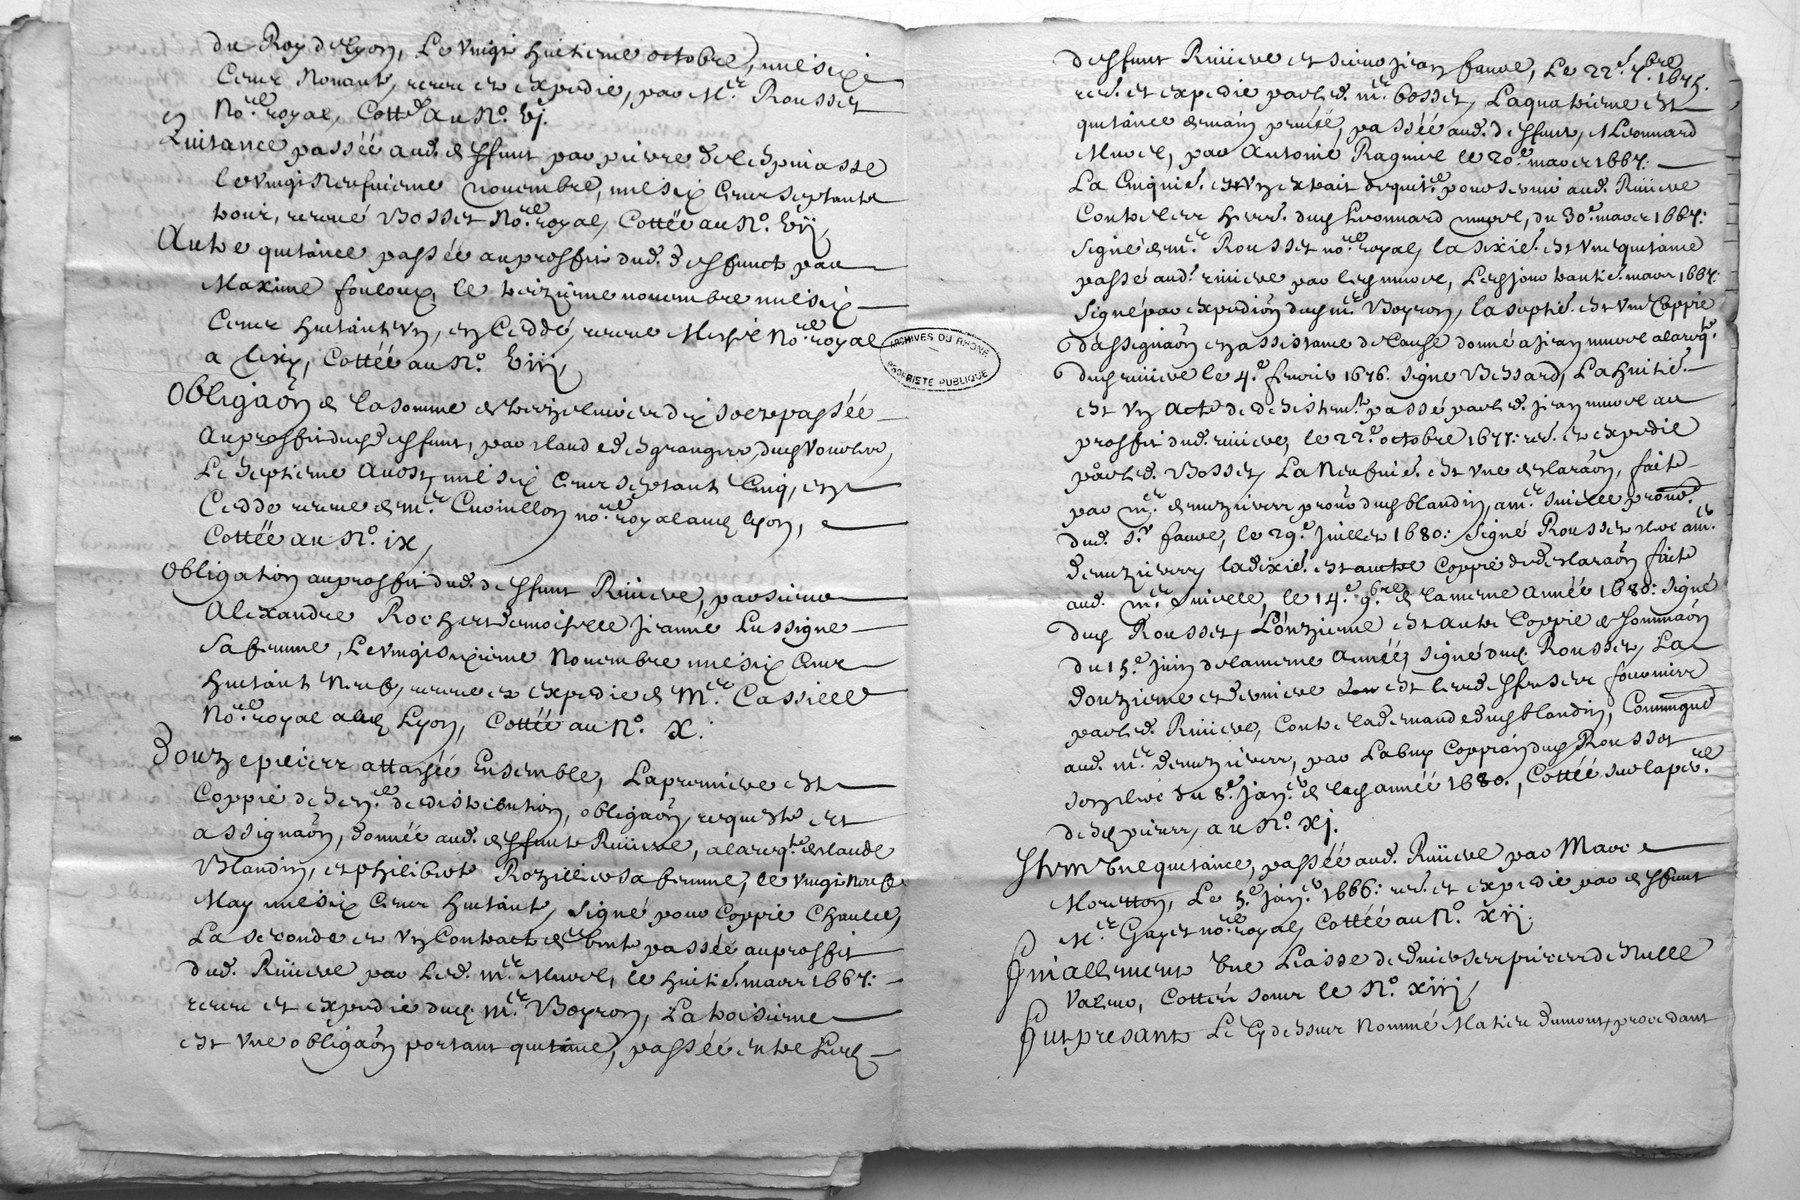 du Roy de Lyon, Le vingt huictieme octobre, mil six
Cens Nonante, receu et expedie, par Mer. Rousset
No.re royal, Cotté au No. vj.
Quitance passéé aud. deffunt par pierre de lespinasse
le vingt neufuieme nouembre, mil six Cens septante
trois, receue Bosset No.re royal, Cottéé au No. vij,
Autre quitance passéé au proffit dud. deffunct par
Maxime fouloux, le treizieme nouembre mil six
Cens huictante vn, en Cedde, receue No.re royal
a Cottéé au No. viij,
Obligaôn de la somme de treize liures dix sols passéé
au proffit dud. deffunt, par Claude desgranges, dud.
Le septieme Aoust, mil six Cens septante Cinq, en
Cedde receue de m.re no.re royal aud. Lyon,
Cottéé au No. ix,
Obligation au proffit dud. deffunt Riuiere, par sieur
Alexandre Rochet demoiselle Jeanne Lussigne
sa femme, Le vingt sixieme Nouembre mil six Cens
huictante Neuf, receue et expedie de Mer. Cassille
No.re royal aud. Lyon, Cottéé au No. X.
Douze pieces attachéé Ensemble, La premiere est
Coppie de sen.ce de distribution, obligaôn, requeste et
assignaôn, donnée aud. deffunt Riuiere, a la req.te de Claude
Blandin, et philiberte Rozillier sa femme, le vingt neuf
May mil six Cens huictante, signé pour Coppie Chaulce,
La seconde est vn Contract de vente passéé au proffit
dud. Riuiere par Led. m.re Murel, le huitié. mars 1667:
receu et expedie dud. m.re Boyron, La troisieme
est vne obligaôn portant quitance, passéé entre Led.
deffunt Riuiere et sieur Jean faure, Le 22e. 7bre 1675.
rec. et expedie par led. m.re Bosset, La quatrieme est
quitance de main priuéé, passéé aud. deffunt, Leonnard
Murel, par Antoine Raginel le 20e. mars 1667.
La Cinquié. est vn extrait de quit.ce pour seruir aud. Riuiere
Contre les herrs. dud. Leonnard murel, du 30e. mars 1667:
signé de m.re Rousset no.re royal, la sixié. est vne quitance
passé aud. riuiere par led. murel, Led. jour trantié. mars 1667:
signé par expedion dud. m.re Boyron, la septié. est vne Coppie
dassignaôn en assistance de Cause donné a Jean murel a la req.te
dud. riuiere le 4e. feurier 1676. signe Bessard, La huitié.
est vn acte de desistem.t passé par led. Jean murel au
proffit dud. riuiere, le 22e. octobre 1677: rec. et expedie
par led. Bosset, La Neufuié. est vne declaraôn, faite
par m.re demeziieres dud. blandin, a m.re
dud. Sr. faure, le 29e. Juillet 1680: signé Rousset
demeziieres, la dixié. est autre Coppie de declaraôn faite
aud. m.re le 14e. 9bre de la meme Année 1680: signé
dud. Rousset, L'onzieme est autre Coppie de sommaôn
du 15e. Juin de la meme Année, signé dud. Rousset, La
douzieme et derniere est les deffenses fournies
par led. Riuiere, Contre la demande dud. blandin, Communiqué
aud. m.re demeziieres, par dud. Rousset
son clerc du 8e. Jan.er de lad. année 1680., Cottéé sur la pre.re
desd. pieces, au No. xj.
Item vne quitance, passéé aud. Riuiere par Marc
Moretton, Le 5e. Jan.er 1666: rec. et expedie par deffunt
Mer. Gayet no.re royal, Cottéé au No. xij.
Finallement vne Liasse de diuerses pieces de Nulle
Valeur, Cottéé sous le No. xiij,
Fut presant Le Cy dessus Nommé Matieu dumont, procedant
ARCHIVES DU RHONE
PROPRIETE PUBLIQUE